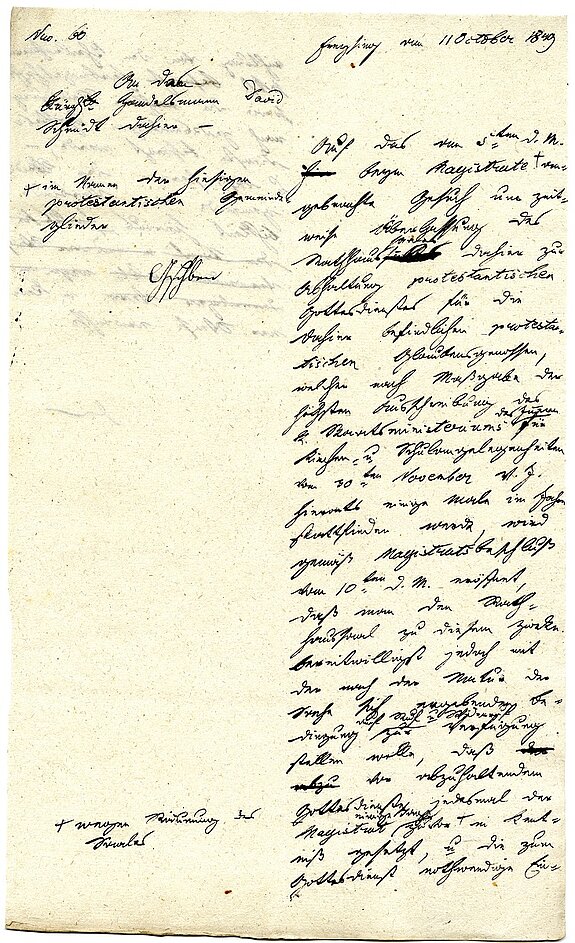 Nro. 60
Freysing am 11 October 1849
An den
bürgl. Handelsmann David
Schmidt dahier –
+ im Namen der hiesigen
protestantischen Gemeinde
glieder
Auf das am 5ten d. M.
beym Magistrate + an-
gebrachte Gesuch um zeit-
weise Überlassung des
Rathhaussaales dahier zur
Abhaltung protestantischen
Gottesdienstes für die
dahier befindlichen protestan-
tischen Glaubensgenossen,
welcher nach Maßgabe der
höchsten Ausschreibung des
k. Staatsministeriums des Innern für
Kirchen- u. Schulangelegenheiten
vom 30ten November v. J.
hierorts einige Male im Jahre
stattfinden werde, wird
gemäß Magistratsbeschluß
vom 10ten d. M. eröffnet,
daß man den Rath-
haussaal zu diesem Zwecke
bereitwilligst jedoch mit
der nach der Natur der
Sache sich ergebenden Be-
dingung auf Ruf u. Widerruf zur Verfügung
stellen wolle, daß
vor abzuhaltendem
Gottesdienste jedesmal der
Magistrat einige Tage zuvor + in Kent-
niß gesetzt, u. die zum
Gottesdienst nothwendige Ein-
+ wegen Räumung des
Saales